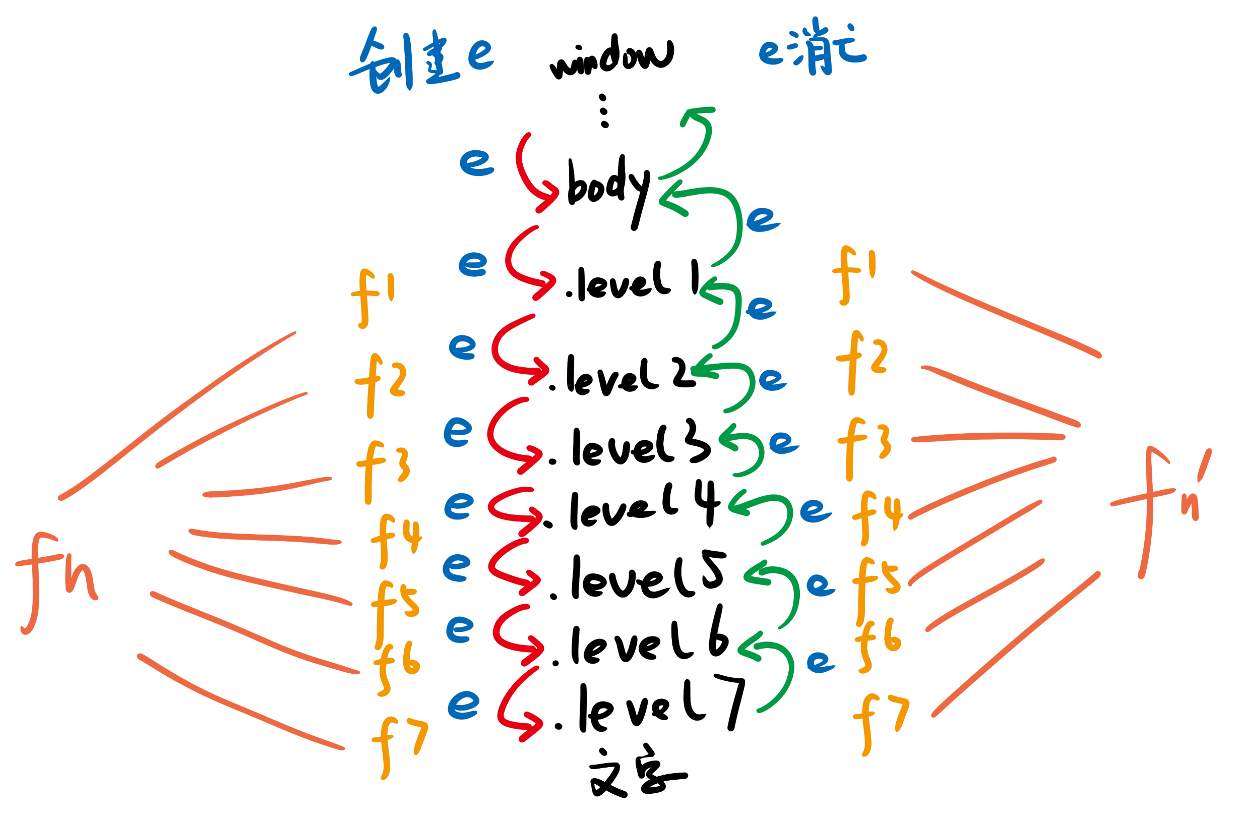 创建e window e消亡
⋮
e body
e
e .level 1 f1 f1
e
e .level 2 f2 f2
e
e .level 3 f3 f3
e
e .level 4 e f4 f4
fn fn'
e .level 5 e f5 f5
e .level 6 f6 f6
e
e .level 7 f7 f7
文字